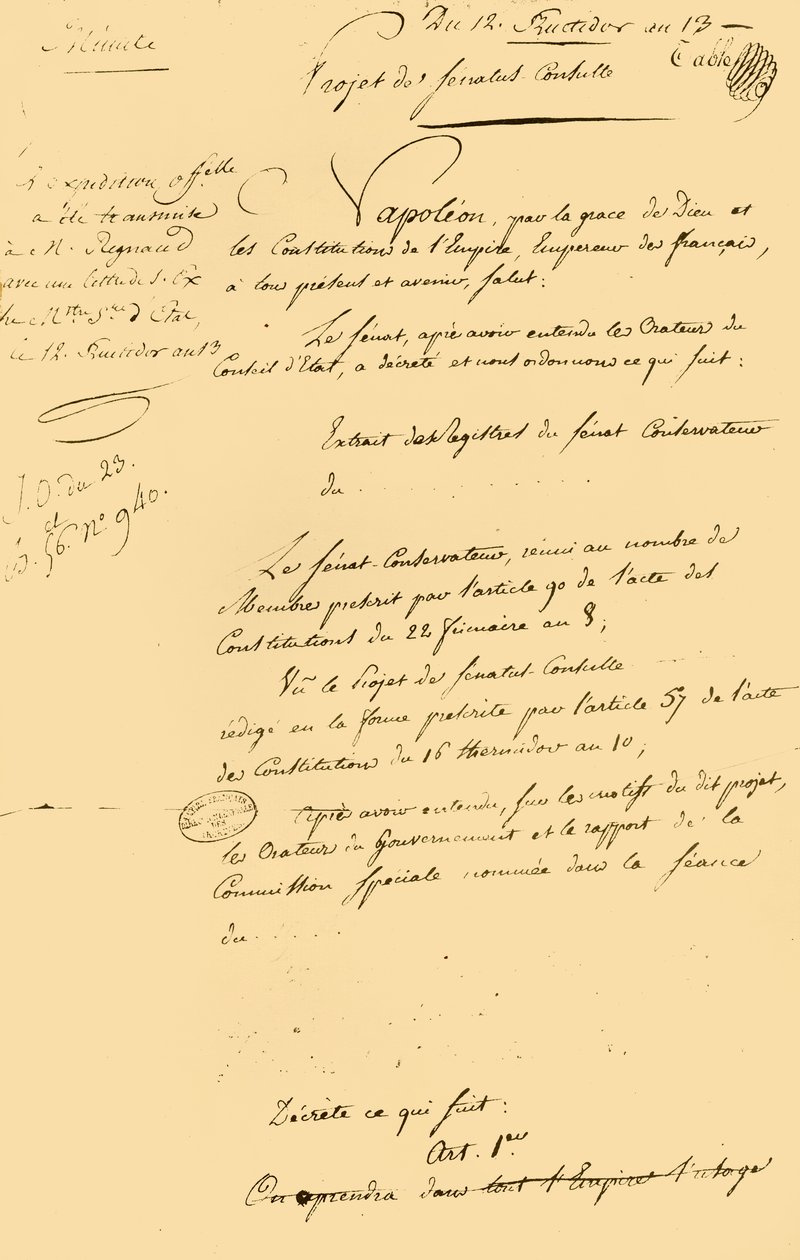 Minute
Du 12. Fructidor an 13 —
Table
Projet de Sénatus-Consulte
L'expédition off.elle
a été transmise
à M. Regnaud
avec une lettre de S. Ex
le M.tre S.re d'Etat,
le 12. Fructidor an 13
J. O. du 23.
et
B. 56. N.º 940.
Napoléon, par la grace de Dieu et
les Constitutions de l'Empire, Empereur des français,
à tous présens et avenir, Salut:
Le Sénat, après avoir entendu les Orateurs du
Conseil d'Etat, a décrété et nous ordonnons ce qui suit:
Extrait des Registres du Sénat Conservateur
du . . . . . . . .
Le Sénat-Conservateur, réuni au nombre de
Membres prescrit par l'article 90 de l'acte des
Constitutions du 22 frimaire an 8;
Vu le Projet de Senatus-Consulte
rédigé en la forme prescrite par l'article 57 de l'acte
des Constitutions du 16 thermidor an 10;
Après avoir entendu, sur les motifs du dit projet,
les Orateurs du Gouvernement et le rapport de la
Commission spéciale nommée dans la séance
du . . . . .
Décrète ce qui suit:
Art. 1.er
On reprendra dans tout l'Empire l'usage